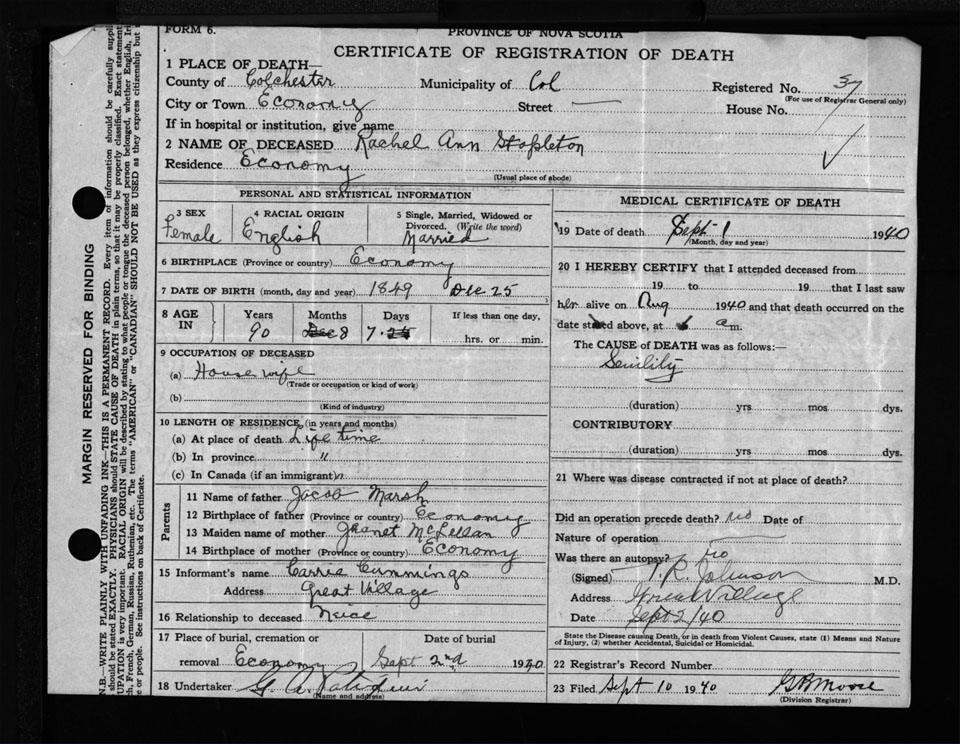 FORM 6.
PROVINCE OF NOVA SCOTIA
CERTIFICATE OF REGISTRATION OF DEATH
1 PLACE OF DEATH—
County of Colchester Municipality of Col Registered No. 57
(For use of Registrar General only)
City or Town Economy Street — House No.
If in hospital or institution, give name
2 NAME OF DECEASED Rachel Ann Stapleton
Residence Economy
(Usual place of abode)
PERSONAL AND STATISTICAL INFORMATION
3 SEX Female
4 RACIAL ORIGIN English
5 Single, Married, Widowed or Divorced. (Write the word) Married
6 BIRTHPLACE (Province or country) Economy
7 DATE OF BIRTH (month, day and year) 1849 Dec 25
8 AGE IN Years Months Days If less than one day,
90 8 7 hrs. or min.
9 OCCUPATION OF DECEASED
(a) House wife
(Trade or occupation or kind of work)
(b)
(Kind of industry)
10 LENGTH OF RESIDENCE (in years and months)
(a) At place of death Life time
(b) In province "
(c) In Canada (if an immigrant) "
Parents
11 Name of father Jacob Marsh
12 Birthplace of father (Province or country) Economy
13 Maiden name of mother Jeanet McLellan
14 Birthplace of mother (Province or country) Economy
15 Informant's name Carrie Cummings
Address Great Village
16 Relationship to deceased Neice
17 Place of burial, cremation or removal Economy
Date of burial Sept 2nd 1940
18 Undertaker G. A.
(Name and address)
MEDICAL CERTIFICATE OF DEATH
19 Date of death Sept 1 1940
(Month, day and year)
20 I HEREBY CERTIFY that I attended deceased from
19 to 19 that I last saw
her alive on Aug 1940 and that death occurred on the
date stated above, at 6 a m.
The CAUSE of DEATH was as follows:—
Senility
(duration) yrs mos dys.
CONTRIBUTORY
(duration) yrs mos dys.
21 Where was disease contracted if not at place of death?
Did an operation precede death? no Date of
Nature of operation
Was there an autopsy? no
(Signed) T. R. Johnson M.D.
Address Great Village
Date Sept 2/40
State the Disease causing Death, or in death from Violent Causes, state (1) Means and Nature
of Injury, (2) whether Accidental, Suicidal or Homicidal.
22 Registrar's Record Number
23 Filed Sept 10 1940 G B Moore
(Division Registrar)
MARGIN RESERVED FOR BINDING
N.B.—WRITE PLAINLY WITH UNFADING INK—THIS IS A PERMANENT RECORD. Every item of information should be carefully suppli
should be stated EXACTLY. PHYSICIANS should STATE CAUSE OF DEATH in plain terms, so that it may be properly classified. Exact statement
UPATION is very important. RACIAL ORIGIN will be described by stating to what people or tongue the deceased person belonged, whether English, Iri
ch, French, German, Russian, Ruthenian, etc. The terms "AMERICAN" or "CANADIAN" SHOULD NOT BE USED as they express citizenship but
e or people. See instructions on back of Certificate.